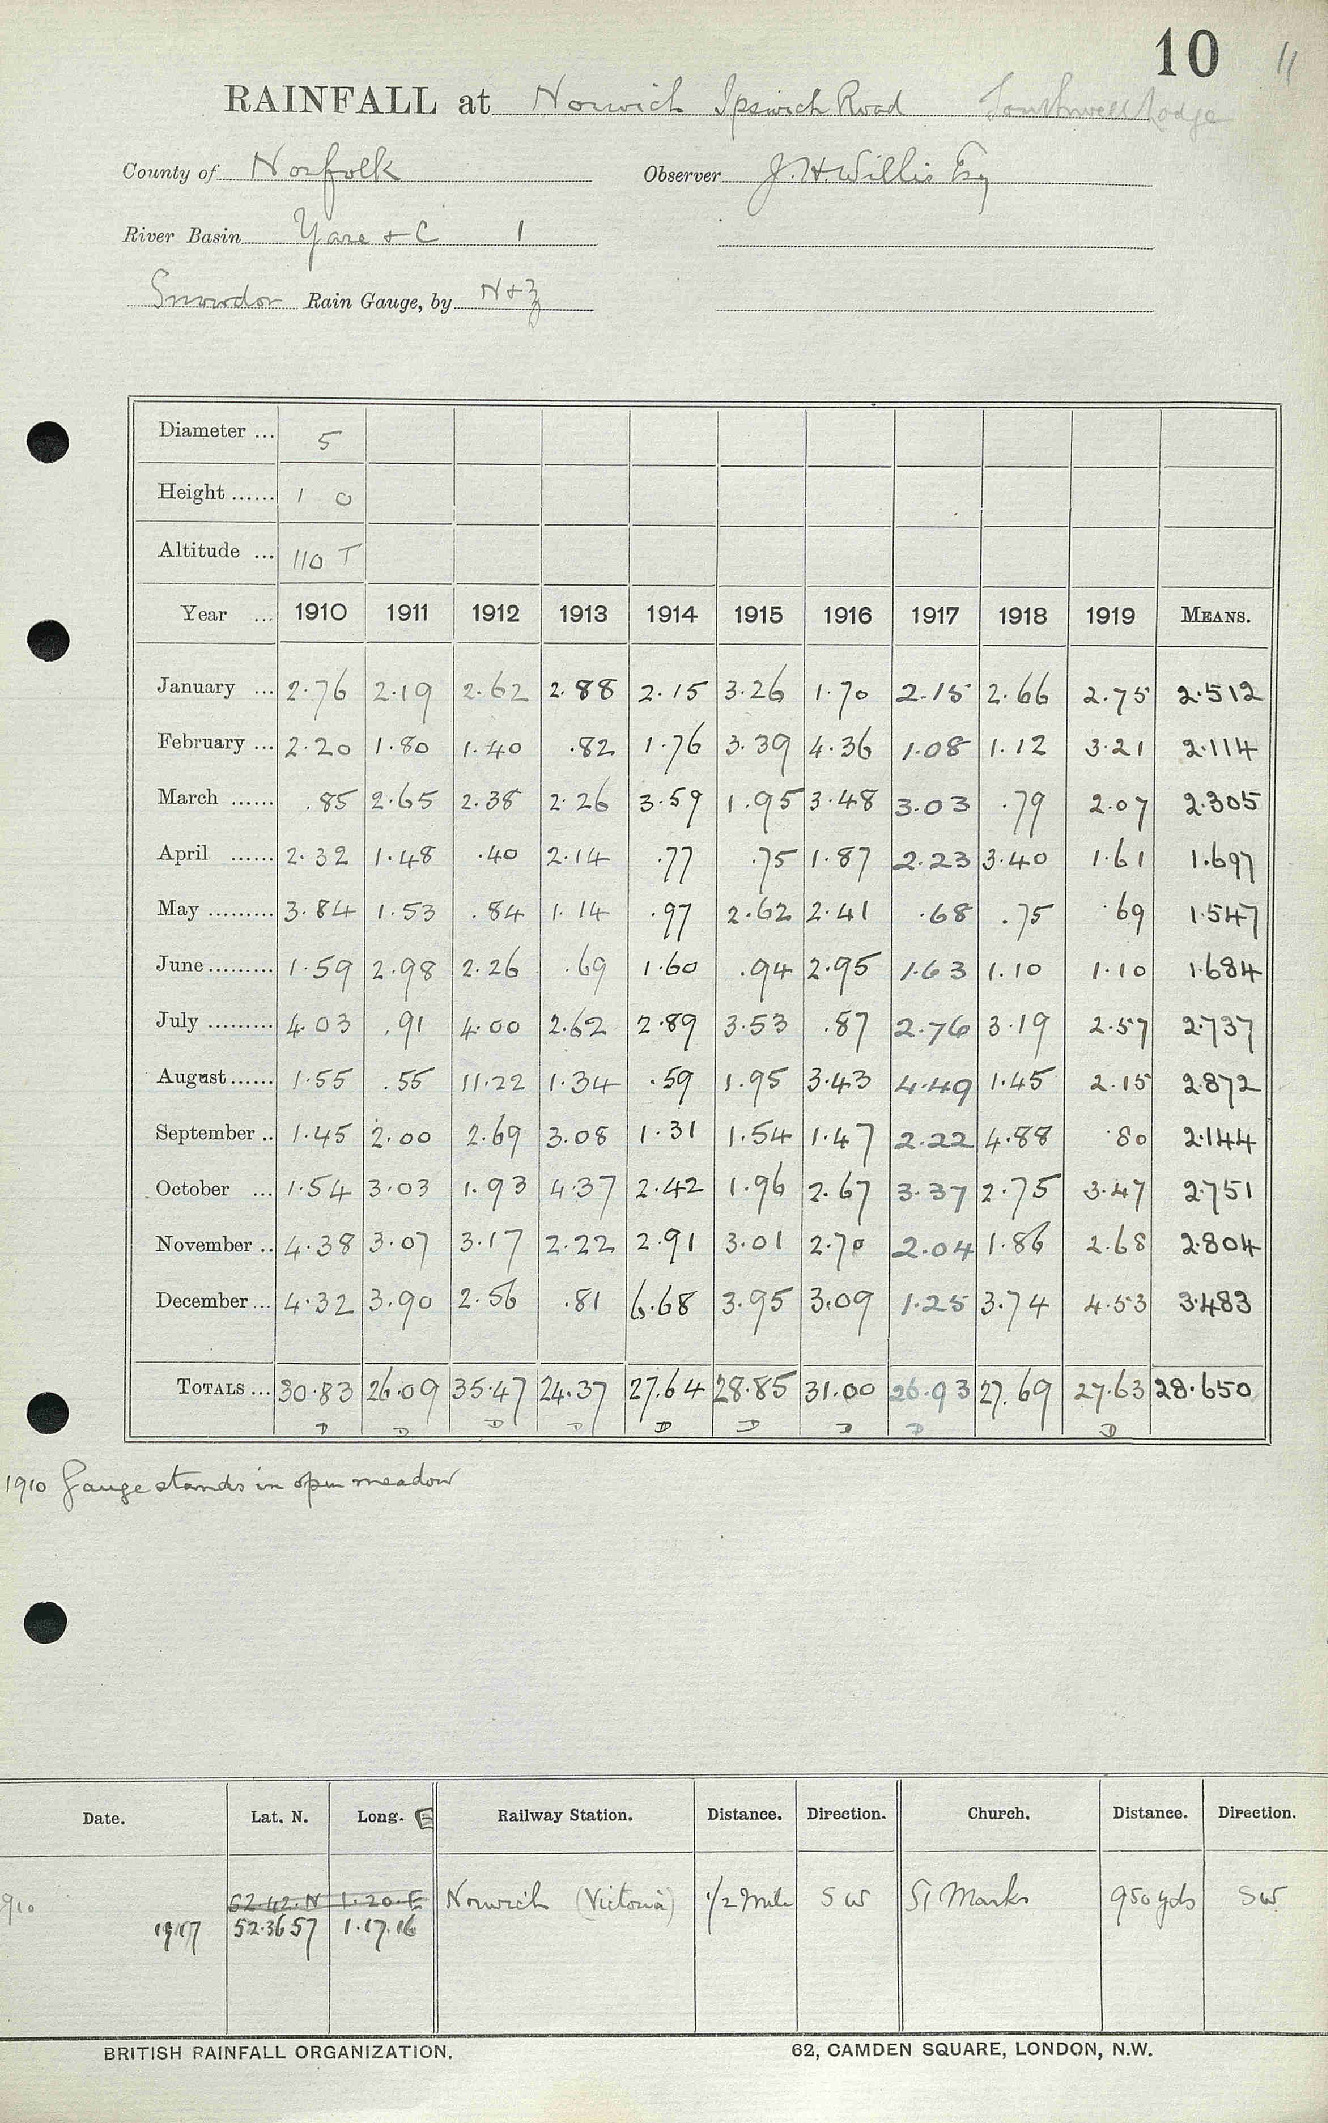 10 11
RAINFALL at Norwich Ipswich Road Southwell Lodge
County of Norfolk Observer J. H. Willis Esq
River Basin Yare & C 1
Snowdon Rain Gauge, by N & Z
Diameter ... 5
Height ...... 1 0
Altitude ... 110 T
Year ... 1910 1911 1912 1913 1914 1915 1916 1917 1918 1919 MEANS.
January ... 2.76 2.19 2.62 2.88 2.15 3.26 1.70 2.15 2.66 2.75 2.512
February ... 2.20 1.80 1.40 .82 1.76 3.39 4.36 1.08 1.12 3.21 2.114
March ...... .85 2.65 2.38 2.26 3.59 1.95 3.48 3.03 .79 2.07 2.305
April ...... 2.32 1.48 .40 2.14 .77 .75 1.87 2.23 3.40 1.61 1.697
May ......... 3.84 1.53 .84 1.14 .97 2.62 2.41 .68 .75 .69 1.547
June ......... 1.59 2.98 2.26 .69 1.60 .94 2.95 1.63 1.10 1.10 1.684
July ......... 4.03 .91 4.00 2.62 2.89 3.53 .87 2.76 3.19 2.57 2.737
August ...... 1.55 .55 11.22 1.34 .59 1.95 3.43 4.49 1.45 2.15 2.872
September .. 1.45 2.00 2.69 3.08 1.31 1.54 1.47 2.22 4.88 .80 2.144
October ... 1.54 3.03 1.93 4.37 2.42 1.96 2.67 3.37 2.75 3.47 2.751
November .. 4.38 3.07 3.17 2.22 2.91 3.01 2.70 2.04 1.86 2.68 2.804
December ... 4.32 3.90 2.56 .81 6.68 3.95 3.09 1.25 3.74 4.53 3.483
TOTALS ... 30.83 26.09 35.47 24.37 27.64 28.85 31.00 26.93 27.69 27.63 28.650
D D D D D D D D D
1910 Gauge stands in open meadow
Date. Lat. N. Long. E Railway Station. Distance. Direction. Church. Distance. Direction.
910 52.42.N 1.20.E Norwich (Victoria) 1/2 Mile SW St Marks 950 yds SW
1917 52.36 57 1.17.16
BRITISH RAINFALL ORGANIZATION. 62, CAMDEN SQUARE, LONDON, N.W.